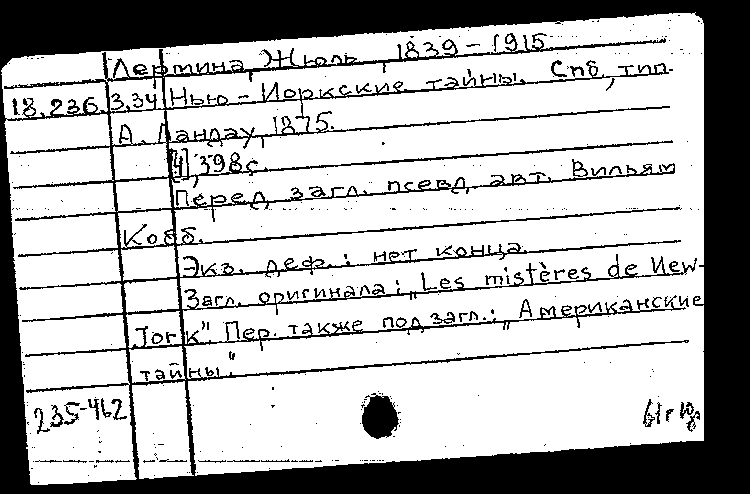 Лермина, Жюль, 1839-1915
18.236.3.34 Нью-Йоркские тайны. Спб, тип.
А. Ландау, 1875.
[4], 398с.
Перед загл. псевд. авт. Вильям
Кобб.
Экз. деф.: нет конца
Загл. оригинала: „Les mistères de New-
Jork". Пер. также под загл.: „Американские
тайны".
235-462